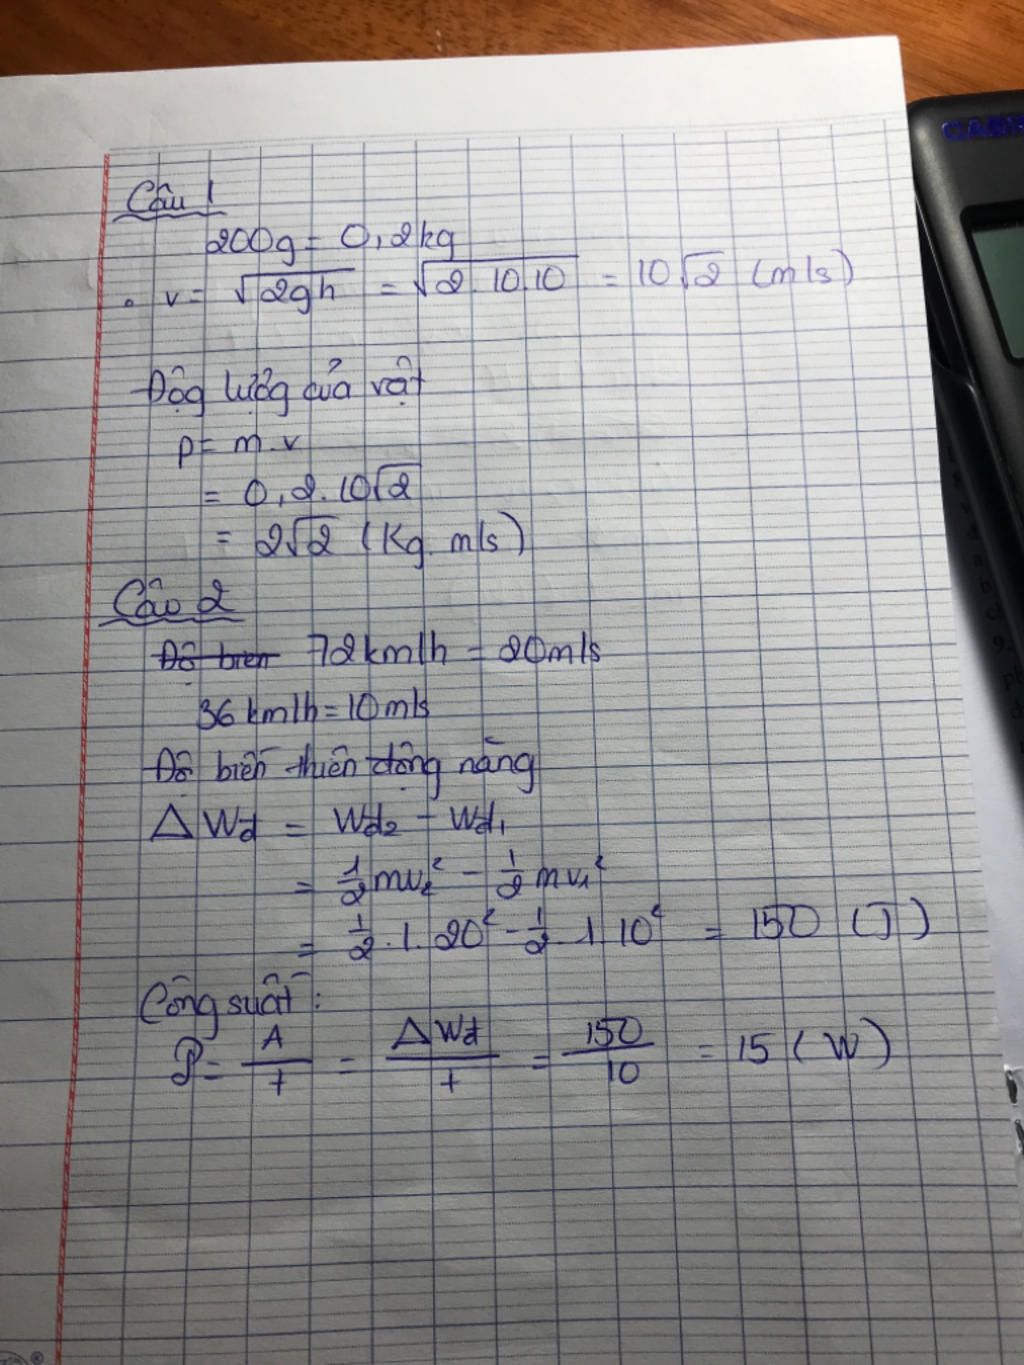 Câu 1
200g = 0,2kg
. v = √2gh = √2.10.10 = 10√2 (m/s)
Độg lượg của vật
p = m.v
= 0,2.10√2
= 2√2 (Kg.m/s)
Câu 2
Độ biên 72km/h = 20m/s
36km/h = 10m/s
Độ biến thiên động năng
ΔWđ = Wđ₂ - Wđ₁
= 1/2 mv₂² - 1/2 mv₁²
= 1/2 . 1. 20² - 1/2 . 1. 10² = 150 (J)
Công suất :
P = A/t = ΔWđ/t = 150/10 = 15 (W)